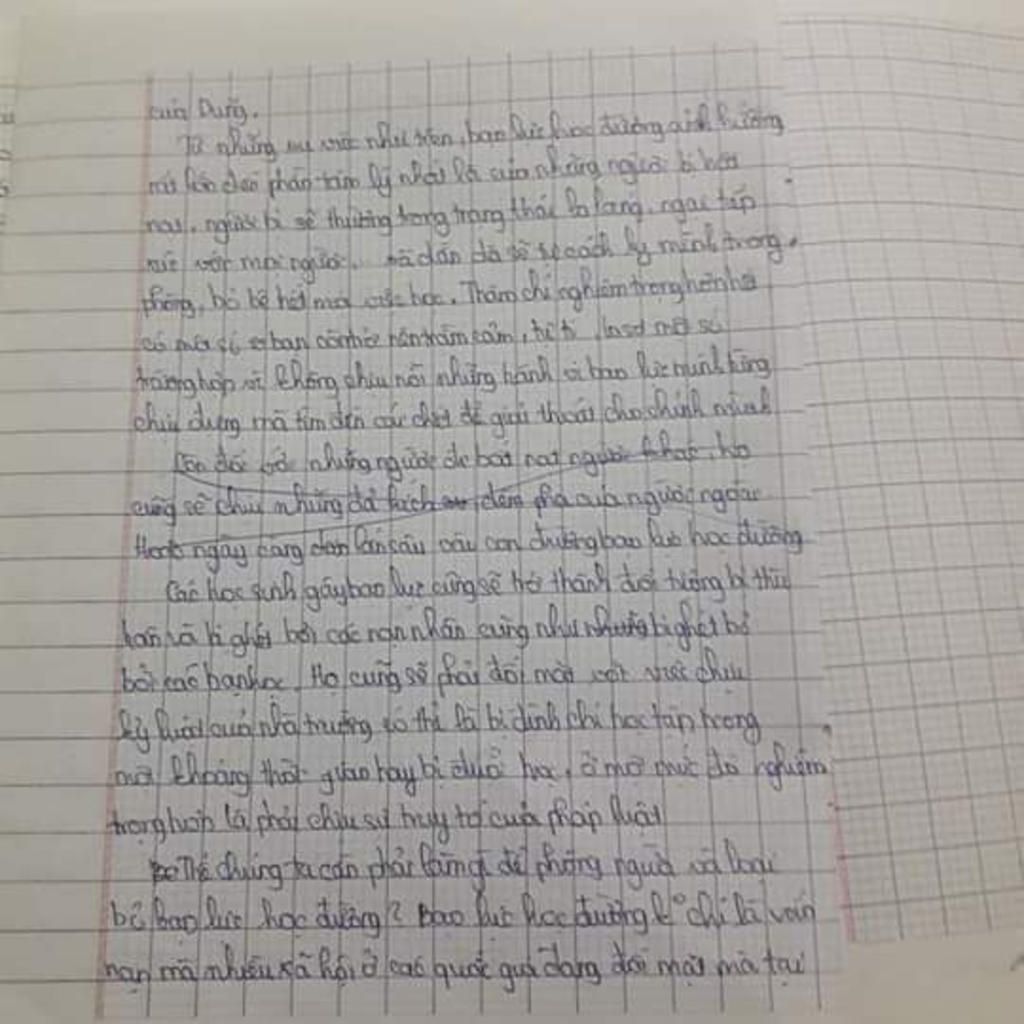 của Dũng.
Từ những vụ việc như trên, bạo lực học đường ảnh hưởng
rất lớn đến phần tâm lý nhất là của những người bị bắt
nạt, người bị sẽ thường trong trạng thái lo lắng, ngại tiếp
xúc với mọi người, mà dần dà sẽ tự cách ly mình trong
phòng, bỏ bê hết mọi việc học. Thậm chí nghiêm trọng hơn
có một số bạn còn trầm cảm, tự tử, một số
trường hợp vì không chịu nổi những hành vi bạo lực mình từng
chịu đựng mà tìm đến cái chết để giải thoát cho chính mình
Còn đối với những người đi bắt nạt người khác, họ
cũng sẽ chịu những đả kích, dèm pha của người ngoài
ngày càng dấn lún sâu vào con đường bạo lực học đường
Các học sinh gây bạo lực cũng sẽ trở thành đối tượng bị thù
hằn và bị ghét bởi các nạn nhân cũng như bị ghét bỏ
bởi các bạn học. Họ cũng sẽ phải đối mặt với việc chịu
kỷ luật của nhà trường có thể là bị đình chỉ học tập trong
một khoảng thời gian hay bị đuổi học, ở một mức độ nghiêm
trọng hơn là phải chịu sự truy tố của pháp luật
Thế chúng ta cần phải làm gì để phòng ngừa và loại
bỏ bạo lực học đường? Bạo lực học đường k° chỉ là vấn
nạn mà nhiều xã hội ở các quốc gia đang đối mặt mà tại